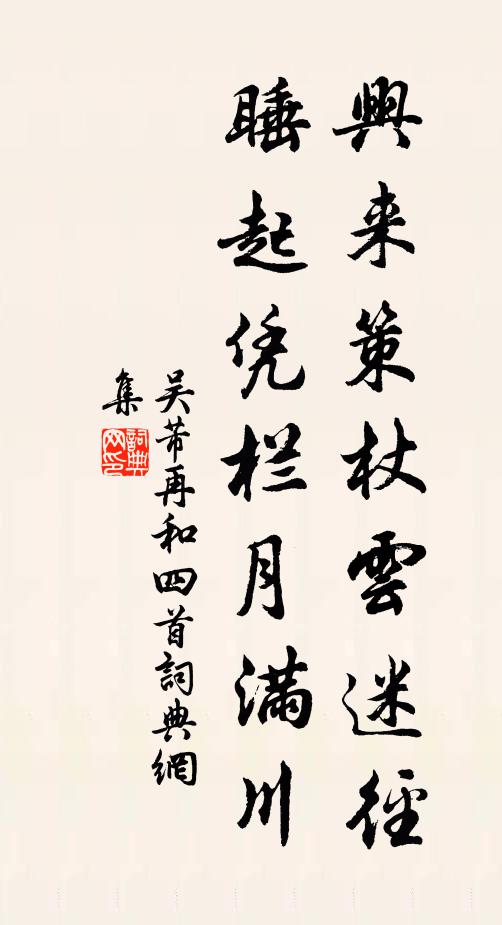 興来策杖雲迷徑
睡起凭栏月滿川
吴芾再和四首詞典網
集
詞典網印